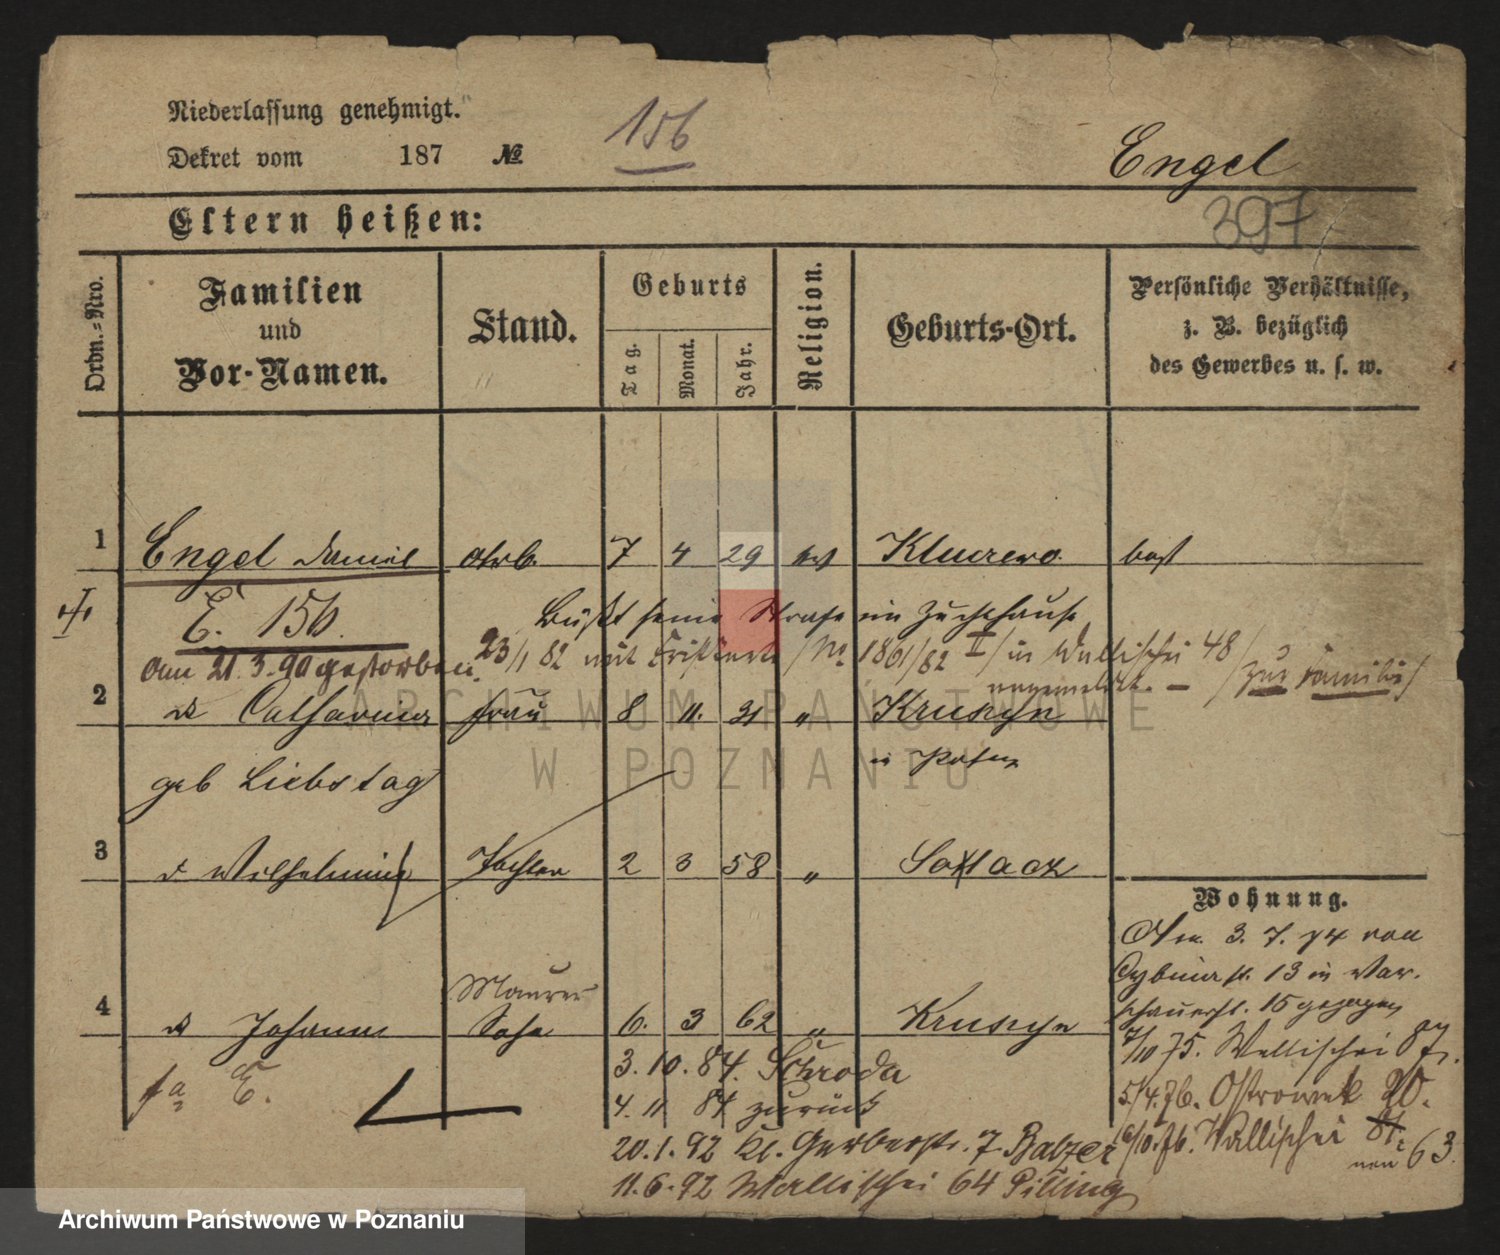 Niederlassung genehmigt.
Dekret vom 187 № 156
Engel
397
Eltern heißen:
Ordn.=Nro.
Familien
und
Vor-Namen.
Stand.
Geburts
Tag.
Monat.
Jahr.
Religion.
Geburts-Ort.
Persönliche Verhältnisse,
z. B. bezüglich
des Gewerbes u. s. w.
1 Engel Daniel Arb. 7 4 29 ev Kluczewo
E. 156.
Büßt seine Strafe im Zuchthause
23/1 82 mit 1861/82 II in Wallischei 48
angemeldet. — / zur Familie /
Am 21.3.90 gestorben.
2 Catharina Frau 8 11. 31 " Kruszyn
geb Liebstag
in Posen
3 Wilhelmine Tochter 2 3 58 "
4 Johann Maurer Sohn 6. 3 62 " Kruszyn
fa E.
Wohnung.
Am 3. 7. 74 von
Cybinast. 13 in War-
schauerst. 15 gezogen
7/10 75. Wallischei 87.
5/4.76. Ostrowek 20.
10/10.76. Wallischei 87.
neu 63.
3.10.84. Schroda
4.11 84 zurück
20.1.92 Kl. Gerberstr. 7. Balzer
11.6.92 Wallischei 64 Pilling
ARCHIWUM PAŃSTWOWE
W POZNANIU
Archiwum Państwowe w Poznaniu